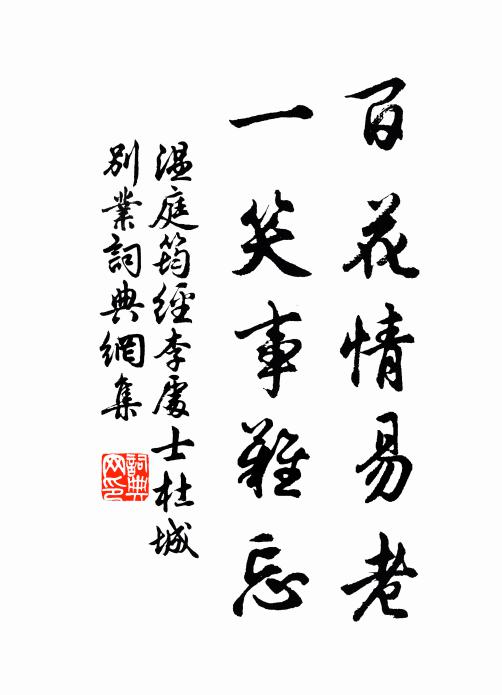 百花情易老
一笑事難忘
溫庭筠經李處士杜城
別業詞典網集
詞典
网印